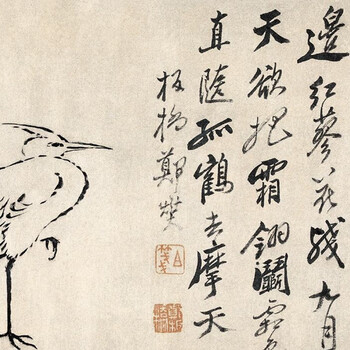 邊紅蓼花殘九月
天欲把霜翎鬭
直隨孤鶴去摩天
板橋鄭燮